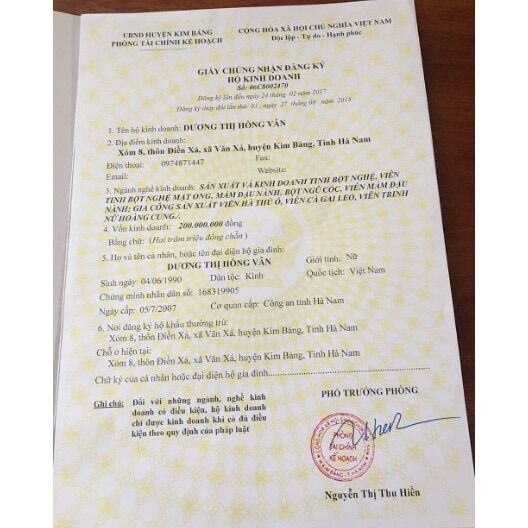 UBND HUYỆN KIM BẢNG
PHÒNG TÀI CHÍNH KẾ HOẠCH
CỘNG HÒA XÃ HỘI CHỦ NGHĨA VIỆT NAM
Độc lập - Tự do - Hạnh phúc
GIẤY CHỨNG NHẬN ĐĂNG KÝ
HỘ KINH DOANH
Số: 06C8002470
Đăng ký lần đầu ngày 24 tháng 02 năm 2017
Đăng ký thay đổi lần thứ: 01, ngày 27 tháng 08 năm 2018
1. Tên hộ kinh doanh: DƯƠNG THỊ HỒNG VÂN
2. Địa điểm kinh doanh:
Xóm 8, thôn Điền Xá, xã Văn Xá, huyện Kim Bảng, Tỉnh Hà Nam
Điện thoại: 0974871447 Fax:
Email: Website:
3. Ngành nghề kinh doanh: SẢN XUẤT VÀ KINH DOANH TINH BỘT NGHỆ, VIÊN
TINH BỘT NGHỆ MẬT ONG, MẦM ĐẬU NÀNH, BỘT NGŨ CỐC, VIÊN MẦM ĐẬU
NÀNH; GIA CÔNG SẢN XUẤT VIÊN HÀ THỦ Ô, VIÊN CÀ GAI LEO, VIÊN TRINH
NỮ HOÀNG CUNG./.
4. Vốn kinh doanh: 200.000.000 đồng
Bằng chữ: (Hai trăm triệu đồng chẵn)
5. Họ và tên cá nhân, hoặc tên đại diện hộ gia đình:
DƯƠNG THỊ HỒNG VÂN Giới tính: Nữ
Sinh ngày: 04/06/1990 Dân tộc: Kinh Quốc tịch: Việt Nam
Chứng minh nhân dân số: 168319905
Ngày cấp: 05/7/2007 Cơ quan cấp: Công an tỉnh Hà Nam
6. Nơi đăng ký hộ khẩu thường trú:
Xóm 8, thôn Điền Xá, xã Văn Xá, huyện Kim Bảng, Tỉnh Hà Nam
Chỗ ở hiện tại:
Xóm 8, thôn Điền Xá, xã Văn Xá, huyện Kim Bảng, Tỉnh Hà Nam
Chữ ký của cá nhân hoặc đại diện hộ gia đình
Ghi chú: Đối với những ngành, nghề kinh
doanh có điều kiện, hộ kinh doanh
chỉ được kinh doanh khi có đủ điều
kiện theo quy định của pháp luật
PHÓ TRƯỞNG PHÒNG
PHÒNG
TÀI CHÍNH
KẾ HOẠCH
Nguyễn Thị Thu Hiền